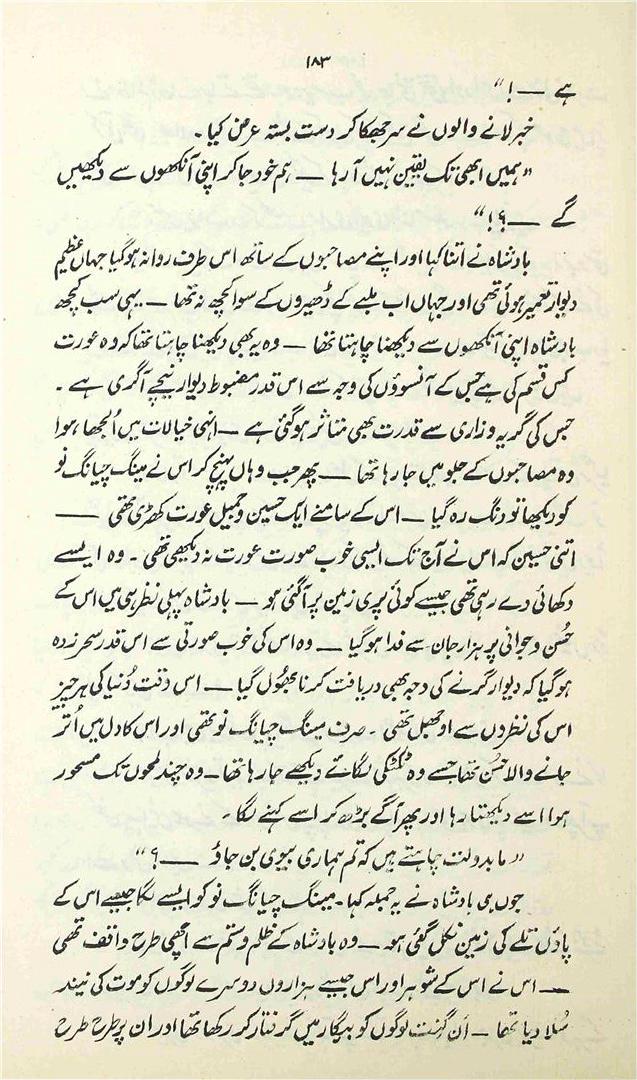 ۱۸۳
ہے ——!"
خبر لانے والوں نے سر جھکا کر دست بستہ عرض کیا۔
"ہمیں ابھی تک یقین نہیں آ رہا — ہم خود جا کر اپنی آنکھوں سے دیکھیں
گے ——؟!"
بادشاہ نے اتنا کہا اور اپنے مصاحبوں کے ساتھ اس طرف روانہ ہو گیا جہاں عظیم
دیوار تعمیر ہوئی تھی اور جہاں اب ملبے کے ڈھیروں کے سوا کچھ نہ تھا — یہی سب کچھ
بادشاہ اپنی آنکھوں سے دیکھنا چاہتا تھا — وہ یہ بھی دیکھنا چاہتا تھا کہ وہ عورت
کس قسم کی ہے جس کے آنسوؤں کی وجہ سے اس قدر مضبوط دیوار نیچے آ گری ہے۔
جس کی گریہ و زاری سے قدرت بھی متاثر ہو گئی ہے — انہی خیالات میں اُلجھا ہوا
وہ مصاحبوں کے جلو میں جا رہا تھا — پھر جب وہاں پہنچ کر اس نے مینگ چیانگ نو
کو دیکھا تو دنگ رہ گیا — اس کے سامنے ایک حسین و جمیل عورت کھڑی تھی ——
اتنی حسین کہ اس نے آج تک ایسی خوب صورت عورت نہ دیکھی تھی۔ وہ ایسے
دکھائی دے رہی تھی جیسے کوئی پری زمین پر آ گئی ہو — بادشاہ پہلی نظر ہی میں اس کے
حُسن و جوانی پر ہزار جان سے فدا ہو گیا — وہ اس کی خوب صورتی سے اس قدر سحر زدہ
ہو گیا کہ دیوار گرنے کی وجہ بھی دریافت کرنا بھُول گیا — اس وقت دُنیا کی ہر چیز
اس کی نظروں سے اوجھل تھی۔ صرف مینگ چیانگ نو تھی اور اس کا دل میں اُتر
جانے والا حُسن تھا جسے وہ ٹکٹکی لگائے دیکھے جا رہا تھا — وہ چند لمحوں تک مسحور
ہوا اسے دیکھتا رہا اور پھر آگے بڑھ کر اسے کہنے لگا۔
"مابدولت چاہتے ہیں کہ تم ہماری بیوی بن جاؤ ——؟"
جوں ہی بادشاہ نے یہ جملہ کہا۔ مینگ چیانگ نو کو ایسے لگا جیسے اس کے
پاؤں تلے کی زمین نکل گئی ہو — وہ بادشاہ کے ظلم و ستم سے اچھی طرح واقف تھی
— اس نے اس کے شوہر اور اس جیسے ہزاروں دوسرے لوگوں کو موت کی نیند
سُلا دیا تھا — اَن گنت لوگوں کو بیگار میں گرفتار کر رکھا تھا اور ان پر طرح طرح